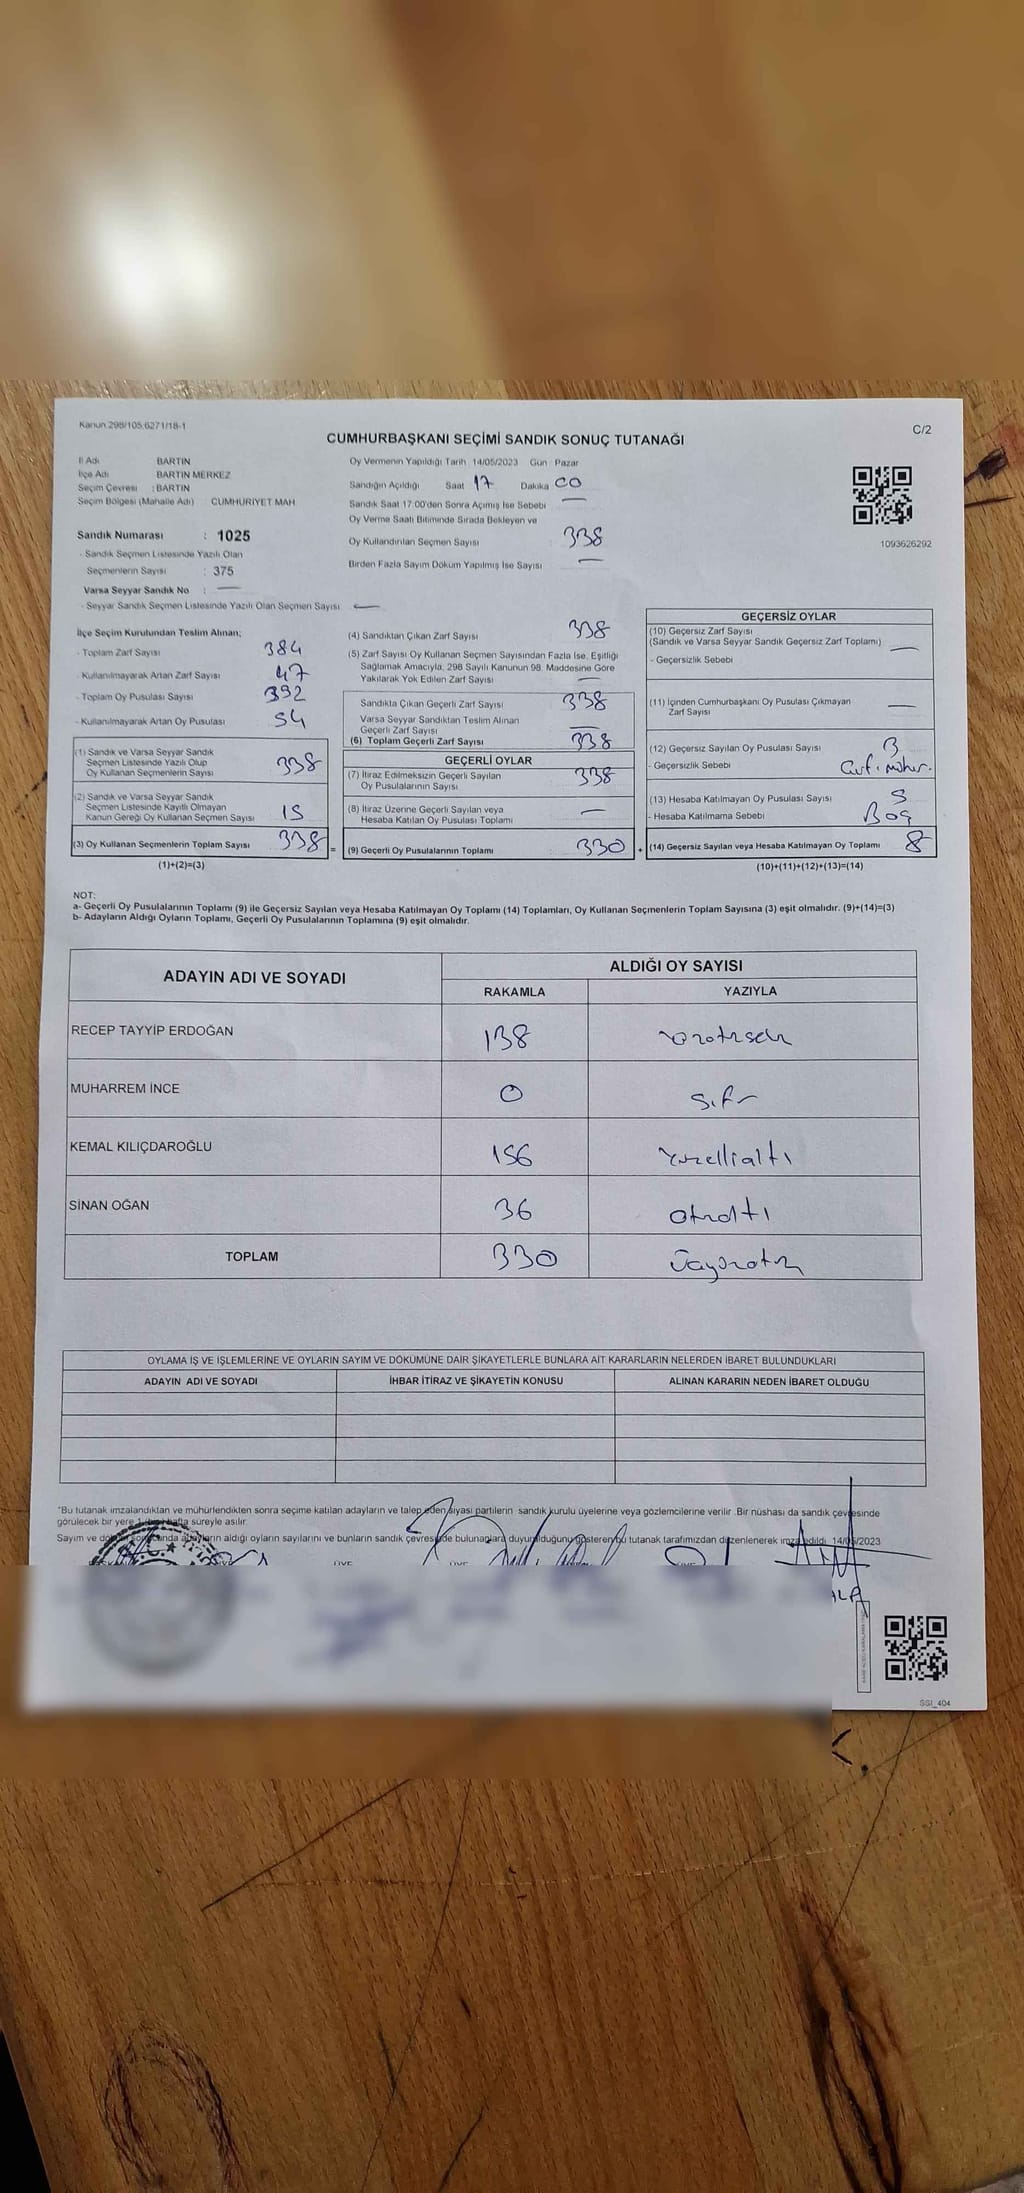 Kanun 298/105,6271/18-1
C/2
CUMHURBAŞKANI SEÇİMİ SANDIK SONUÇ TUTANAĞI
İl Adı BARTIN
İlçe Adı BARTIN MERKEZ
Seçim Çevresi : BARTIN
Seçim Bölgesi (Mahalle Adı) CUMHURİYET MAH.
Sandık Numarası : 1025
- Sandık Seçmen Listesinde Yazılı Olan
Seçmenlerin Sayısı : 375
Varsa Seyyar Sandık No : —
- Seyyar Sandık Seçmen Listesinde Yazılı Olan Seçmen Sayısı —
Oy Vermenin Yapıldığı Tarih 14/05/2023 Gün Pazar
Sandığın Açıldığı Saat 17 Dakika 00
Sandık Saat 17:00'den Sonra Açımış İse Sebebi —
Oy Verme Saati Bitiminde Sırada Bekleyen ve
Oy Kullandırılan Seçmen Sayısı : 338
Birden Fazla Sayım Döküm Yapılmış İse Sayısı —
1093626292
İlçe Seçim Kurulundan Teslim Alınan;
- Toplam Zarf Sayısı 384
- Kullanılmayarak Artan Zarf Sayısı 47
- Toplam Oy Pusulası Sayısı 392
- Kullanılmayarak Artan Oy Pusulası 54
(1) Sandık ve Varsa Seyyar Sandık
Seçmen Listesinde Yazılı Olup
Oy Kullanan Seçmenlerin Sayısı 338
(2) Sandık ve Varsa Seyyar Sandık
Seçmen Listesinde Kayıtlı Olmayan
Kanun Gereği Oy Kullanan Seçmen Sayısı 15
(3) Oy Kullanan Seçmenlerin Toplam Sayısı 338 =
(1)+(2)=(3)
(4) Sandıktan Çıkan Zarf Sayısı 338
(5) Zarf Sayısı Oy Kullanan Seçmen Sayısından Fazla İse, Eşitliği
Sağlamak Amacıyla, 298 Sayılı Kanunun 98. Maddesine Göre
Yakılarak Yok Edilen Zarf Sayısı —
Sandıkta Çıkan Geçerli Zarf Sayısı 338
Varsa Seyyar Sandıktan Teslim Alınan
Geçerli Zarf Sayısı —
(6) Toplam Geçerli Zarf Sayısı 338
GEÇERLİ OYLAR
(7) İtiraz Edilmeksizin Geçerli Sayılan
Oy Pusulalarının Sayısı 338
(8) İtiraz Üzerine Geçerli Sayılan veya
Hesaba Katılan Oy Pusulası Toplamı —
(9) Geçerli Oy Pusulalarının Toplamı 330 +
GEÇERSİZ OYLAR
(10) Geçersiz Zarf Sayısı
(Sandık ve Varsa Seyyar Sandık Geçersiz Zarf Toplamı) —
- Geçersizlik Sebebi
(11) İçinden Cumhurbaşkanı Oy Pusulası Çıkmayan
Zarf Sayısı —
(12) Geçersiz Sayılan Oy Pusulası Sayısı 3
- Geçersizlik Sebebi
(13) Hesaba Katılmayan Oy Pusulası Sayısı 5
- Hesaba Katılmama Sebebi Boş
(14) Geçersiz Sayılan veya Hesaba Katılmayan Oy Toplamı 8
(10)+(11)+(12)+(13)=(14)
NOT:
a- Geçerli Oy Pusulalarının Toplamı (9) ile Geçersiz Sayılan veya Hesaba Katılmayan Oy Toplamı (14) Toplamları, Oy Kullanan Seçmenlerin Toplam Sayısına (3) eşit olmalıdır. (9)+(14)=(3)
b- Adayların Aldığı Oyların Toplamı, Geçerli Oy Pusulalarının Toplamına (9) eşit olmalıdır.
ADAYIN ADI VE SOYADI
ALDIĞI OY SAYISI
RAKAMLA YAZIYLA
RECEP TAYYİP ERDOĞAN 138
MUHARREM İNCE 0 sıfır
KEMAL KILIÇDAROĞLU 156 Yüzellialtı
SİNAN OĞAN 36 otuzaltı
TOPLAM 330 Üçyüzotuz
OYLAMA İŞ VE İŞLEMLERİNE VE OYLARIN SAYIM VE DÖKÜMÜNE DAİR ŞİKAYETLERLE BUNLARA AİT KARARLARIN NELERDEN İBARET BULUNDUKLARI
ADAYIN ADI VE SOYADI İHBAR İTİRAZ VE ŞİKAYETİN KONUSU ALINAN KARARIN NEDEN İBARET OLDUĞU
*Bu tutanak imzalandıktan ve mühürlendikten sonra seçime katılan adayların ve talep eden siyasi partilerin sandık kurulu üyelerine veya gözlemcilerine verilir. Bir nüshası da sandık çevresinde
görülecek bir yere 1 hafta süreyle asılır.
Sayım ve döküm sonucunda adayların aldığı oyların sayılarını ve bunların sandık çevresinde bulunanlara duyurulduğunu gösteren bu tutanak tarafımızdan düzenlenerek imzalandı. 14/05/2023
SSI_404